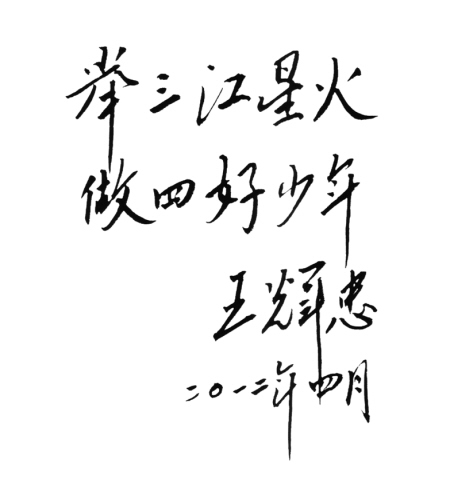 举三江星火
做四好少年
王辉忠
二〇一二年四月